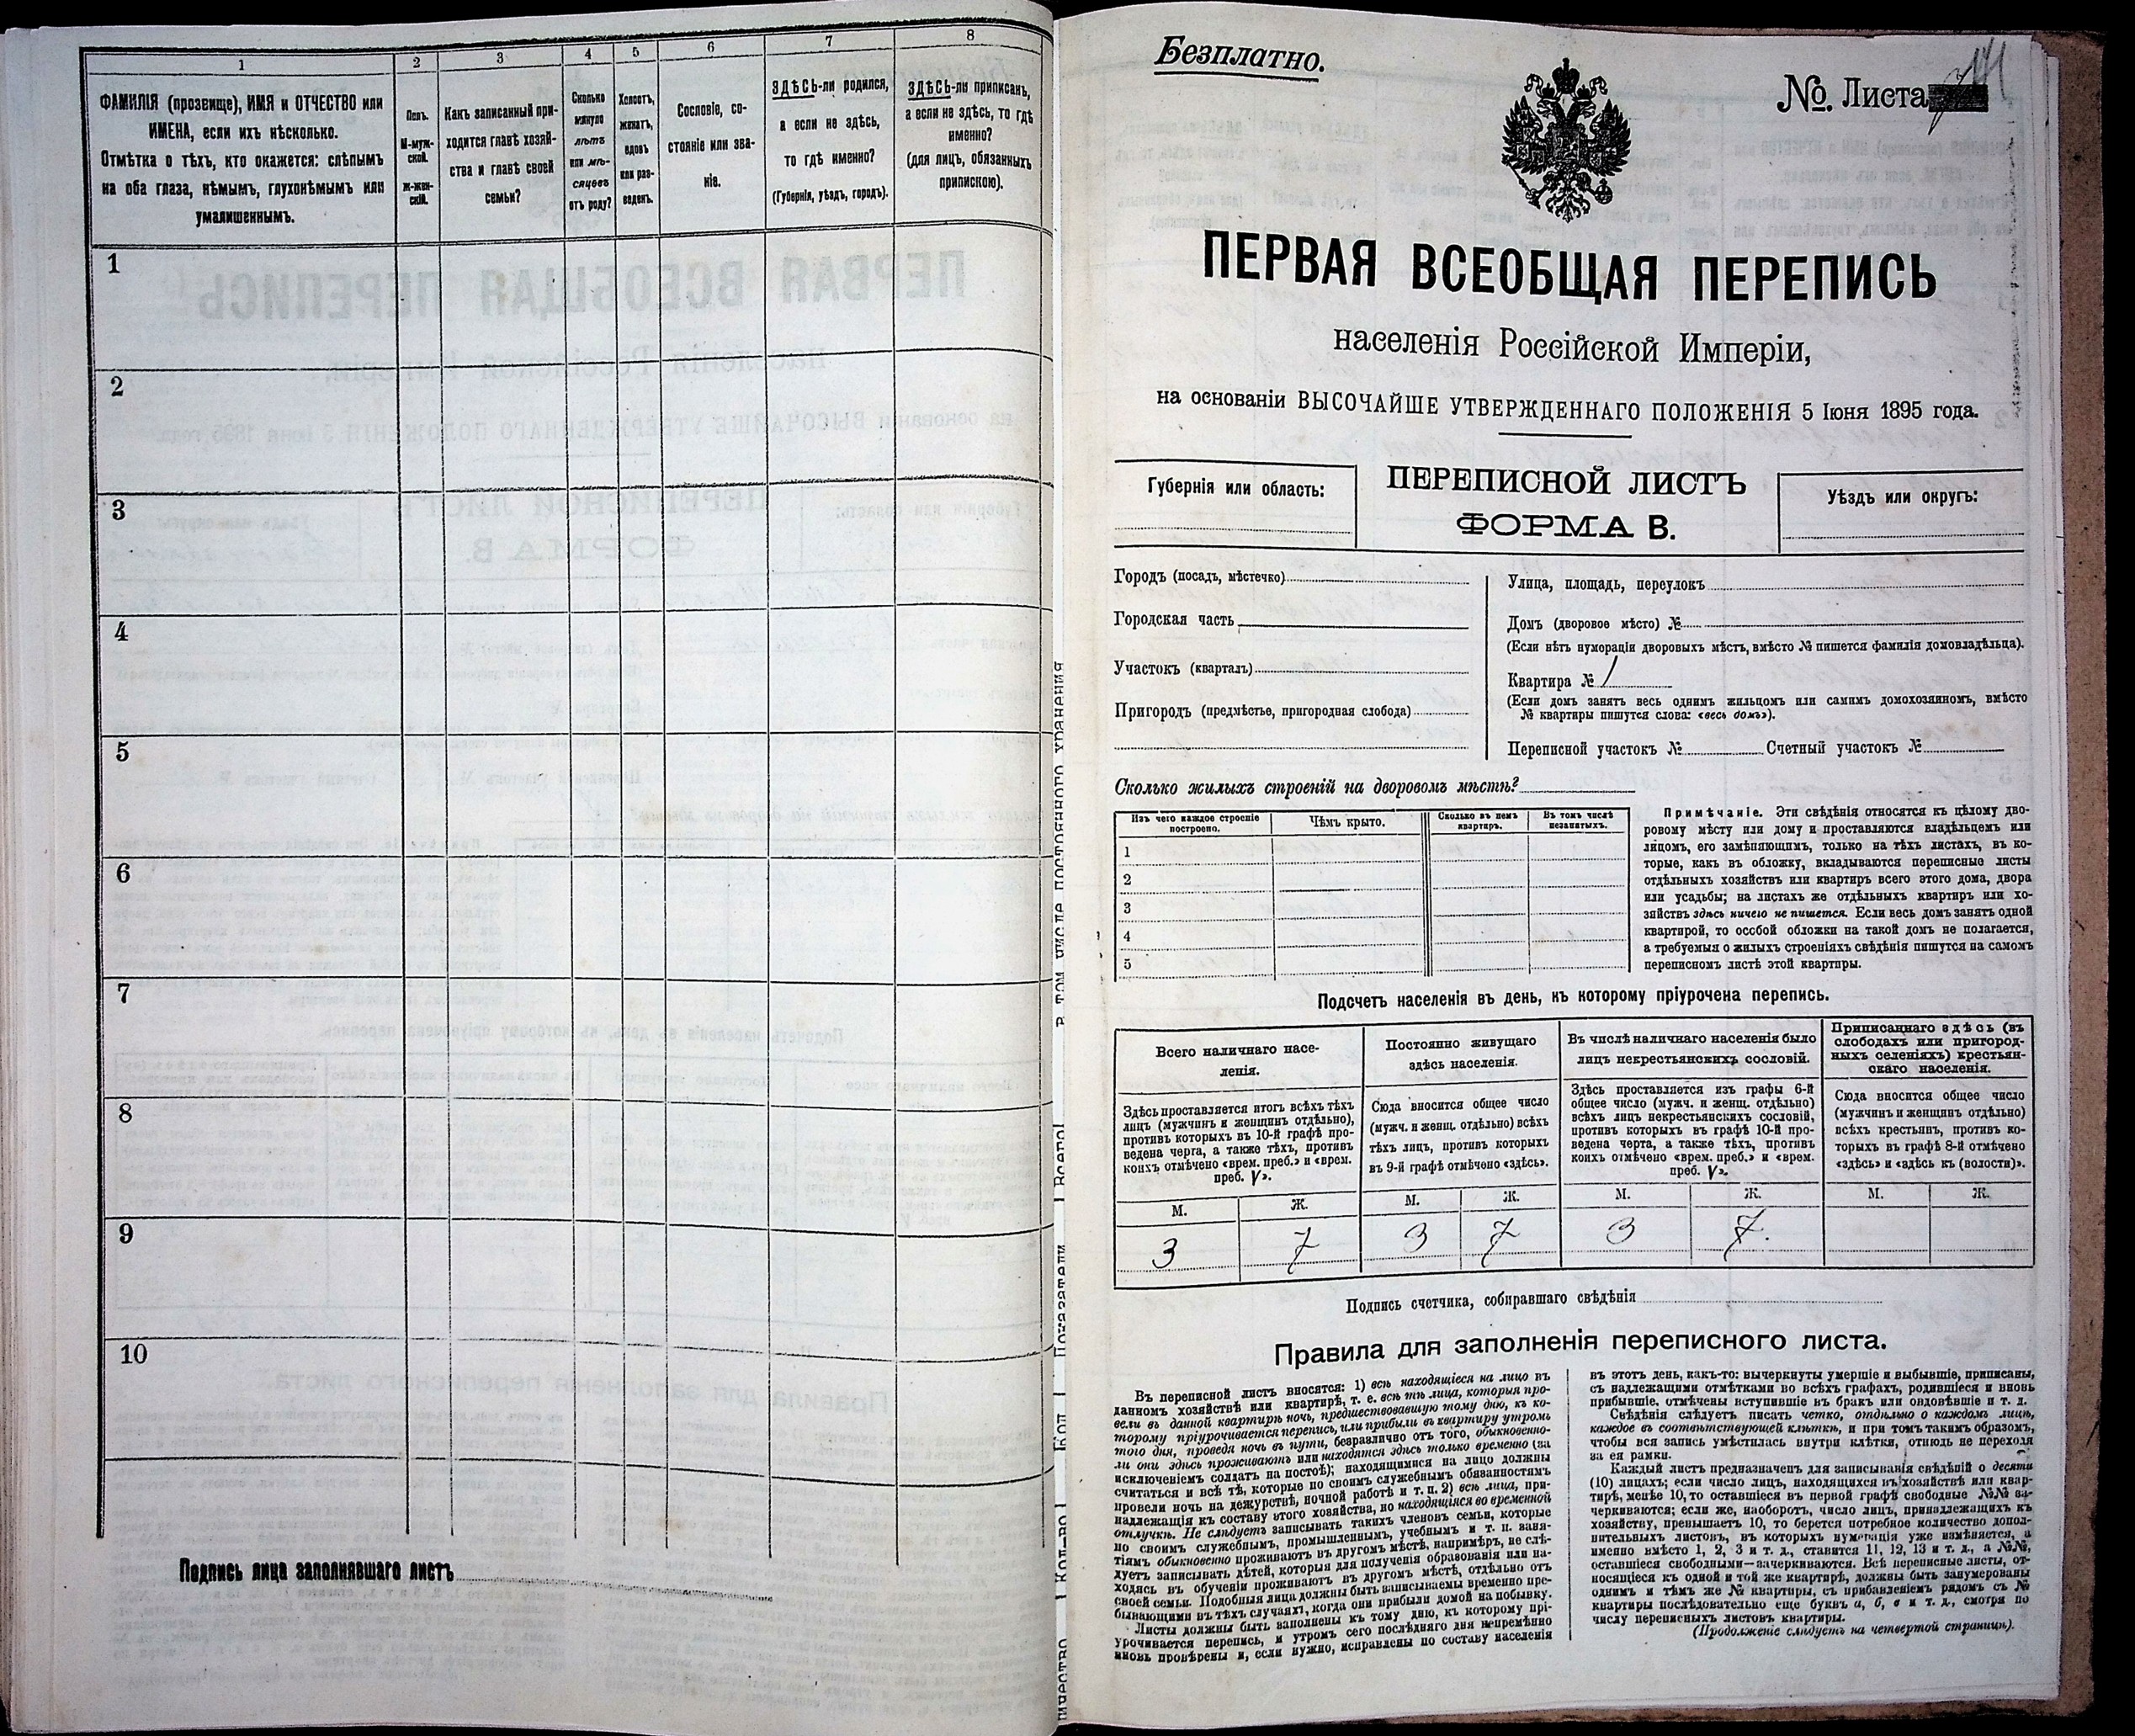 1
2
3
4
5
6
7
8
ФАМИЛІЯ (прозвище), ИМЯ и ОТЧЕСТВО или
ИМЕНА, если ихъ нѣсколько.
Отмѣтка о тѣхъ, кто окажется: слѣпымъ
на оба глаза, нѣмымъ, глухонѣмымъ или
умалишеннымъ.
Полъ.
М-муж-
ской.
Ж-жен-
скій.
Какъ записанный при-
ходится главѣ хозяй-
ства и главѣ своей
семьи?
Сколько
минуло
лѣтъ
или мѣ-
сяцевъ
отъ роду?
Холостъ,
женатъ,
вдовъ
или раз-
веденъ.
Сословіе, со-
стояніе или зва-
ніе.
ЗДѢСЬ-ли родился,
а если не здѣсь,
то гдѣ именно?
(Губернія, уѣздъ, городъ).
ЗДѢСЬ-ли приписанъ,
а если не здѣсь, то гдѣ
именно?
(для лицъ, обязанныхъ
припискою).
1
2
3
4
5
6
7
8
9
10
Подпись лица заполнявшаго листъ
Безплатно.
№. Листа
ПЕРВАЯ ВСЕОБЩАЯ ПЕРЕПИСЬ
населенія Россійской Имперіи,
на основаніи ВЫСОЧАЙШЕ УТВЕРЖДЕННАГО ПОЛОЖЕНІЯ 5 Іюня 1895 года.
Губернія или область:
ПЕРЕПИСНОЙ ЛИСТЪ
ФОРМА В.
Уѣздъ или округъ:
Городъ (посадъ, мѣстечко)
Городская часть
Участокъ (кварталъ)
Пригородъ (предмѣстье, пригородная слобода)
Улица, площадь, переулокъ
Домъ (дворовое мѣсто) №
(Если нѣтъ нумораціи дворовыхъ мѣстъ, вмѣсто № пишется фамилія домовладѣльца).
Квартира № 1
(Если домъ занятъ весь однимъ жильцомъ или самимъ домохозяиномъ, вмѣсто
№ квартиры пишутся слова: «весь домъ»).
Переписной участокъ № Счетный участокъ №
Сколько жилыхъ строеній на дворовомъ мѣстѣ?
Изъ чего каждое строеніе
построено.
Чѣмъ крыто.
Сколько въ немъ
квартиръ.
Въ томъ числѣ
незанятыхъ.
1
2
3
4
5
Примѣчаніе. Эти свѣдѣнія относятся къ цѣлому дво-
ровому мѣсту или дому и проставляются владѣльцемъ или
лицомъ, его замѣняющимъ, только на тѣхъ листахъ, въ ко-
торые, какъ въ обложку, вкладываются переписные листы
отдѣльныхъ хозяйствъ или квартиръ всего этого дома, двора
или усадьбы; на листахъ же отдѣльныхъ квартиръ или хо-
зяйствъ здѣсь ничего не пишется. Если весь домъ занятъ одной
квартирой, то особой обложки на такой домъ не полагается,
а требуемыя о жилыхъ строеніяхъ свѣдѣнія пишутся на самомъ
переписномъ листѣ этой квартиры.
Подсчетъ населенія въ день, къ которому пріурочена перепись.
Всего наличнаго насе-
ленія.
Постоянно живущаго
здѣсь населенія.
Въ числѣ наличнаго населенія было
лицъ некрестьянскихъ сословій.
Приписаннаго здѣсь (въ
слободахъ или пригород-
ныхъ селеніяхъ) крестьян-
скаго населенія.
Здѣсь проставляется итогъ всѣхъ тѣхъ
лицъ (мужчинъ и женщинъ отдѣльно),
противъ которыхъ въ 10-й графѣ про-
ведена черта, а также тѣхъ, противъ
коихъ отмѣчено «врем. преб.» и «врем.
преб. V».
Сюда вносится общее число
(мужч. и женщ. отдѣльно) всѣхъ
тѣхъ лицъ, противъ которыхъ
въ 9-й графѣ отмѣчено «здѣсь».
Здѣсь проставляется изъ графы 6-й
общее число (мужч. и женщ. отдѣльно)
всѣхъ лицъ некрестьянскихъ сословій,
противъ которыхъ въ графѣ 10-й про-
ведена черта, а также тѣхъ, противъ
коихъ отмѣчено «врем. преб.» и «врем.
преб. V».
Сюда вносится общее число
(мужчинъ и женщинъ отдѣльно)
всѣхъ крестьянъ, противъ ко-
торыхъ въ графѣ 8-й отмѣчено
«здѣсь» и «здѣсь къ (волости)».
М. Ж. М. Ж. М. Ж. М. Ж.
3 7 3 7 3 7.
Подпись счетчика, собиравшаго свѣдѣнія
Правила для заполненія переписного листа.
Въ переписной листъ вносятся: 1) всѣ находящіеся на лицо въ
данномъ хозяйствѣ или квартирѣ, т. е. всѣ тѣ лица, которыя про-
вели въ данной квартирѣ ночь, предшествовавшую тому дню, къ ко-
торому пріурочивается перепись, или прибыли въ квартиру утромъ
того дня, проведя ночь въ пути, безразлично отъ того, обыкновенно-
ли они здѣсь проживаютъ или находятся здѣсь только временно (за
исключеніемъ солдатъ на постоѣ); находящимися на лицо должны
считаться и всѣ тѣ, которые по своимъ служебнымъ обязанностямъ
провели ночь на дежурствѣ, ночной работѣ и т. п. 2) всѣ лица, при-
надлежащія къ составу этого хозяйства, но находящіяся во временной
отлучкѣ. Не слѣдуетъ записывать такихъ членовъ семьи, которые
по своимъ служебнымъ, промышленнымъ, учебнымъ и т. п. заня-
тіямъ обыкновенно проживаютъ въ другомъ мѣстѣ, напримѣръ, не слѣ-
дуетъ записывать дѣтей, которыя для полученія образованія или на-
ходясь въ обученіи проживаютъ въ другомъ мѣстѣ, отдѣльно отъ
своей семьи. Подобныя лица должны быть записываемы временно пре-
бывающими въ тѣхъ случаяхъ, когда они прибыли домой на побывку.
Листы должны быть заполнены къ тому дню, къ которому прі-
урочивается перепись, и утромъ сего послѣдняго дня непремѣнно
вновь провѣрены и, если нужно, исправлены по составу населенія
въ этотъ день, какъ-то: вычеркнуты умершіе и выбывшіе, приписаны,
съ надлежащими отмѣтками во всѣхъ графахъ, родившіеся и вновь
прибывшіе, отмѣчены вступившіе въ бракъ или овдовѣвшіе и т. д.
Свѣдѣнія слѣдуетъ писать четко, отдѣльно о каждомъ лицѣ,
каждое въ соотвѣтствующей клѣткѣ, и при томъ такимъ образомъ,
чтобы вся запись умѣстилась внутри клѣтки, отнюдь не переходя
за ея рамки.
Каждый листъ предназначенъ для записыванія свѣдѣній о десяти
(10) лицахъ; если число лицъ, находящихся въ хозяйствѣ или квар-
тирѣ, менѣе 10, то оставшіеся въ первой графѣ свободные №№ за-
черкиваются; если же, наоборотъ, число лицъ, принадлежащихъ къ
хозяйству, превышаетъ 10, то берется потребное количество допол-
нительныхъ листовъ, въ которыхъ нумерація уже измѣняется, а
именно вмѣсто 1, 2, 3 и т. д., ставится 11, 12, 13 и т. д., а №№,
оставшіеся свободными—зачеркиваются. Всѣ переписные листы, от-
носящіеся къ одной и той же квартирѣ, должны быть занумерованы
однимъ и тѣмъ же № квартиры, съ прибавленіемъ рядомъ съ №
квартиры послѣдовательно еще буквъ а, б, в и т. д., смотря по
числу переписныхъ листовъ квартиры.
(Продолженіе слѣдуетъ на четвертой страницѣ).